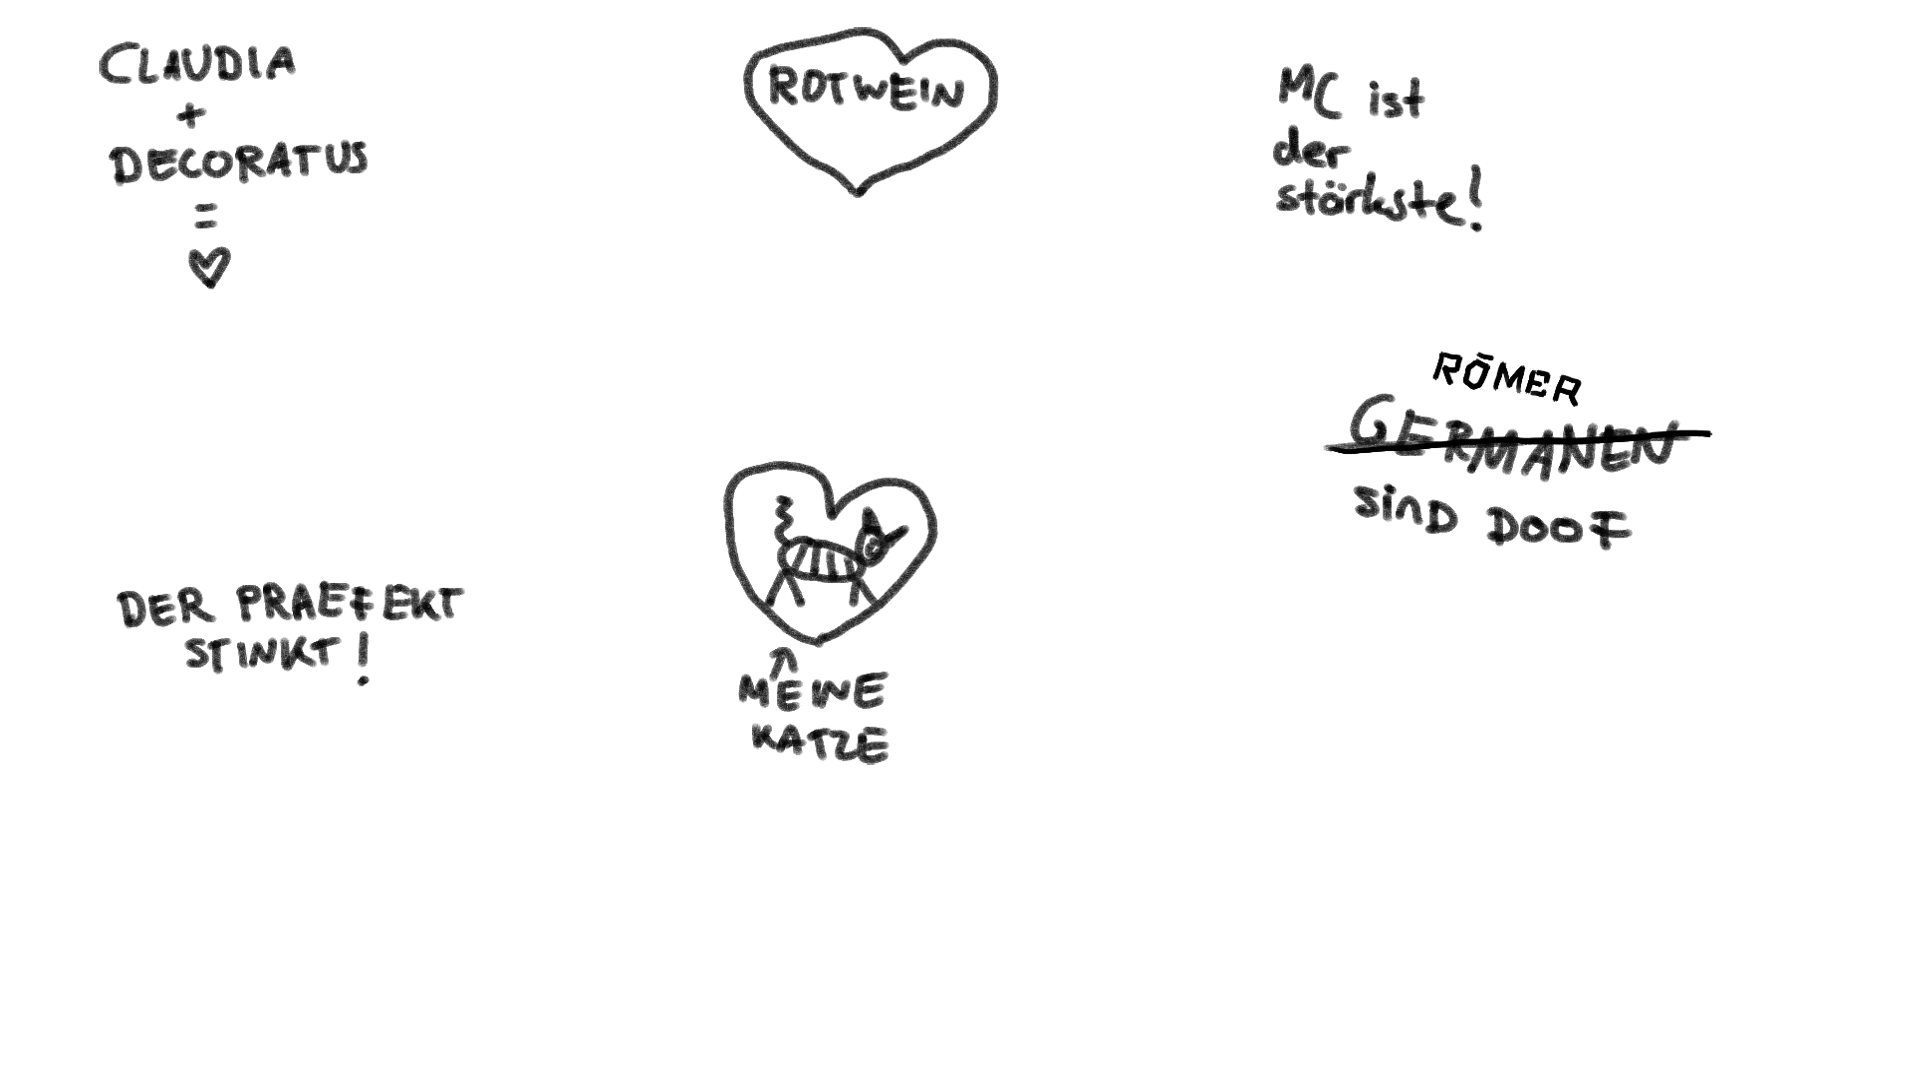 CLAUDIA
+
DECORATUS
=
♡
ROTWEIN
MC ist
der
stärkste!
RÖMER
GERMANEN
SIND DOOF
DER PRAEFEKT
STINKT!
MEINE
KATZE